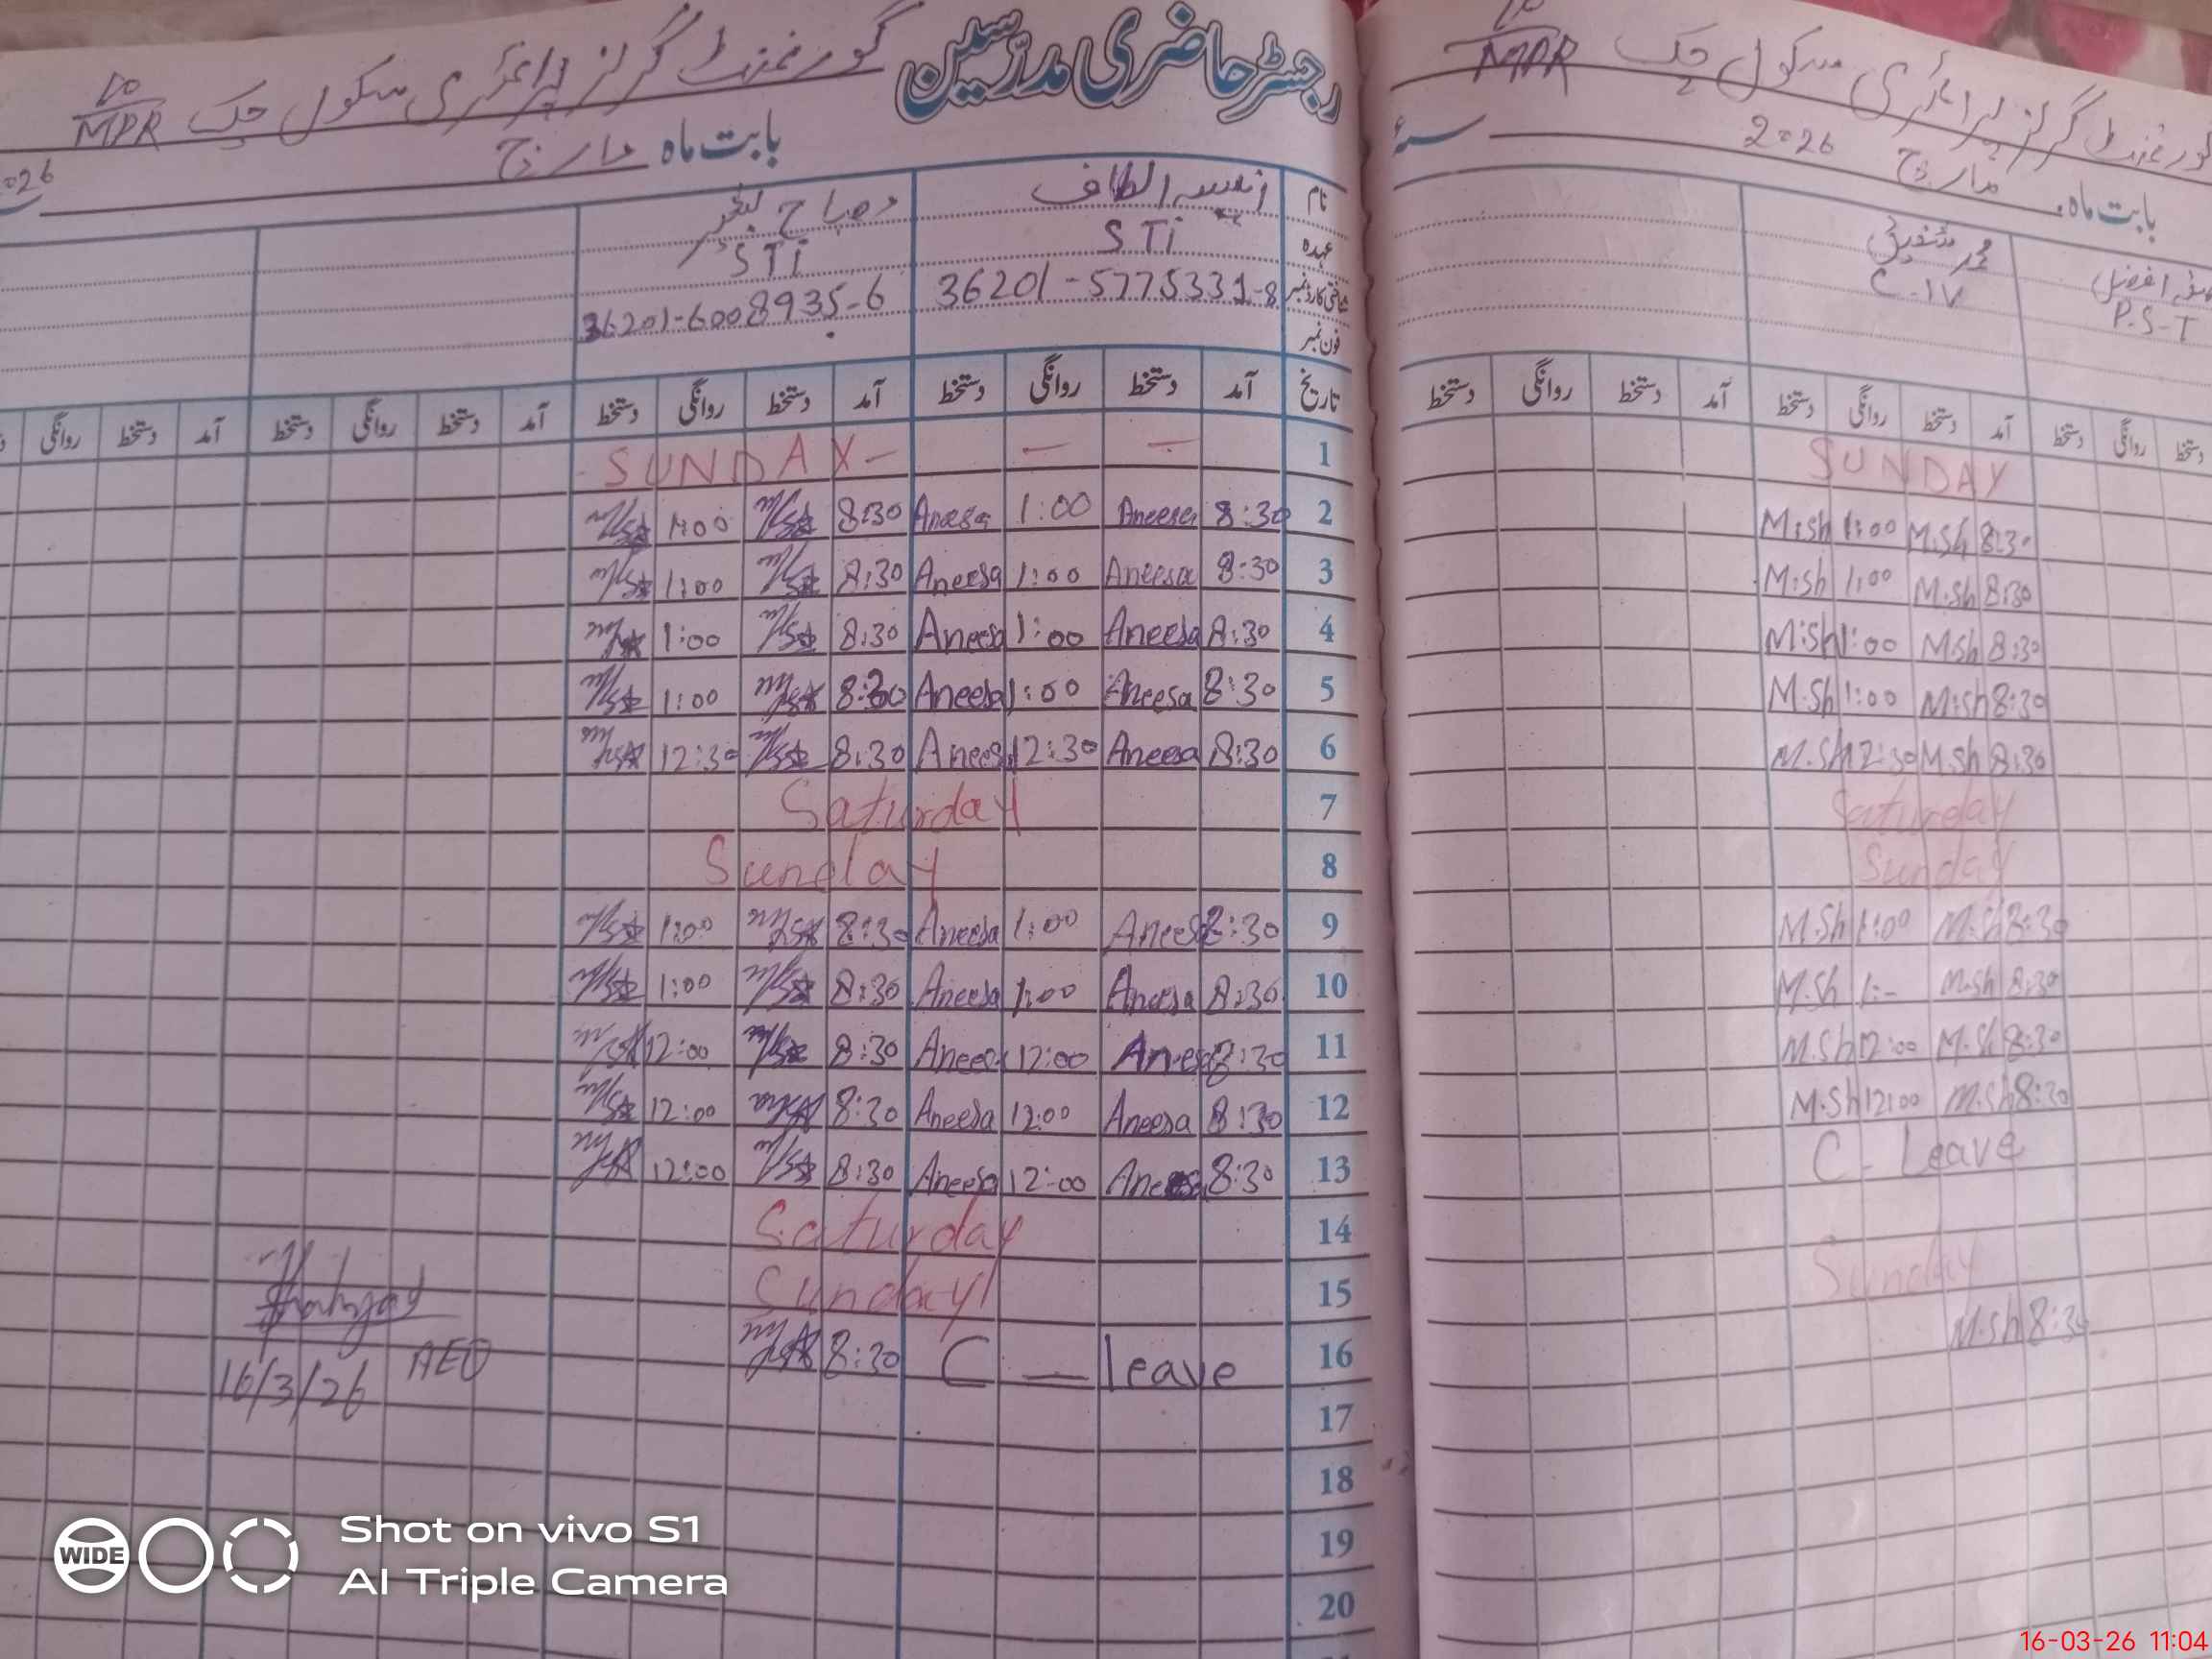 رجسٹر حاضری مدرسین گورنمنٹ گرلز پرائمری سکول چک 10/MPR
بابت ماہ مارچ 2026
نام انیسہ الطاف مصباح
عہدہ STi STi
شناختی کارڈ نمبر 36201-5775331-8 36201-6008935-6
فون نمبر
تاریخ آمد دستخط روانگی دستخط آمد دستخط روانگی دستخط آمد دستخط روانگی دستخط آمد دستخط روانگی
1 — — SUNDAY —
2 8:30 Aneesa 1:00 Aneesa 8:30 1:00
3 8:30 Aneesa 1:00 Aneesa 8:30 1:00
4 8:30 Aneesa 1:00 Aneesa 8:30 1:00
5 8:30 Aneesa 1:00 Aneesa 8:30 1:00
6 8:30 Aneesa 12:30 Aneesa 8:30 12:30
7 Saturday
8 Sunday
9 8:30 Aneesa 1:00 Aneesa 8:30 1:00
10 8:30 Aneesa 1:00 Aneesa 8:30 1:00
11 8:30 Aneesa 12:00 Aneesa 8:30 12:00
12 8:30 Aneesa 12:00 Aneesa 8:30 12:00
13 8:30 Aneesa 12:00 Aneesa 8:30 12:00
14 Saturday
15 Sunday
16 C — leave 8:30
17
18
19
20
AEO
16/3/26
گورنمنٹ گرلز پرائمری سکول چک 10/MPR
بابت ماہ مارچ 2026 سنہء
افضل محمد شفیق
P.S-T C-IV
دستخط روانگی دستخط آمد دستخط روانگی دستخط آمد دستخط روانگی دستخط
SUNDAY
M.Sh 1:00 M.Sh 8:30
M.Sh 1:00 M.Sh 8:30
M.Sh 1:00 M.Sh 8:30
M.Sh 1:00 M.Sh 8:30
M.Sh 12:30 M.Sh 8:30
Saturday
Sunday
M.Sh 1:00 M.Sh 8:30
M.Sh 1:- M.Sh 8:30
M.Sh 12:00 M.Sh 8:30
M.Sh 12:00 M.Sh 8:30
C- Leave
Sunday
M.Sh 8:30
WIDE
Shot on vivo S1
AI Triple Camera
16-03-26 11:04